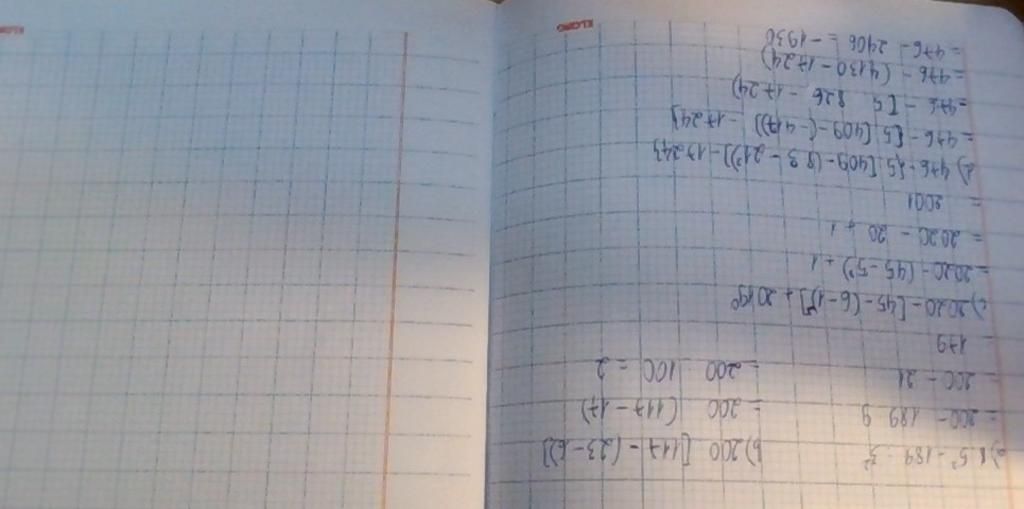 a) 8 5² - 189 : 3²
= 200 - 189 : 9
= 200 - 21
179
b) 200 : [117 - (23 - 6)]
= 200 : (117 - 17)
= 200 : 100 = 2
c) 2020 - [45 - (6 - 1)²] + 2019⁰
= 2020 - (45 - 5²) + 1
= 2020 - 20 + 1
= 2001
d) 476 - {5 [409 - (8 3 - 21²)] - 1724}
= 476 - {5 [409 - (- 417)] - 1724}
= 476 - [5 826 - 1724)
= 476 - (4130 - 1724)
= 476 - 2406 = - 1930